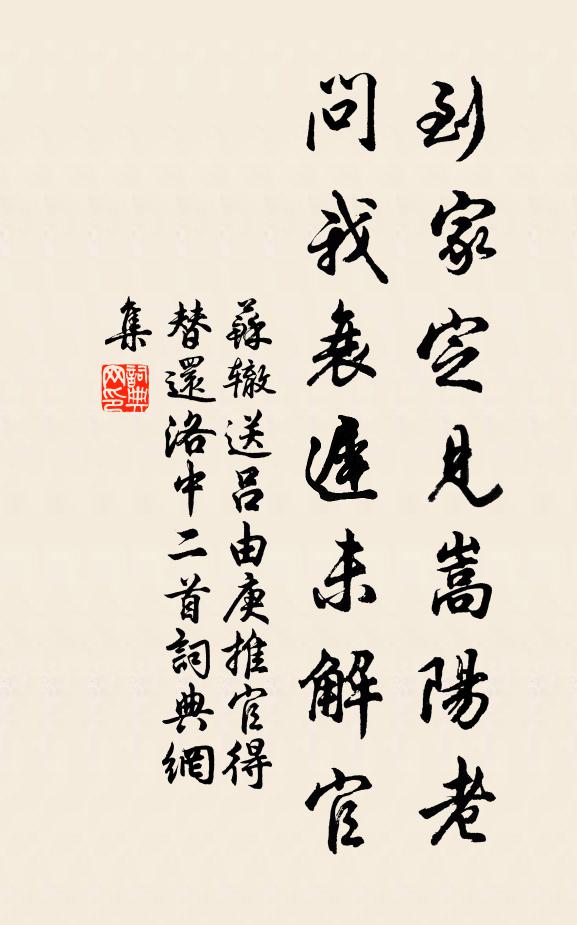 到家定見嵩陽老
問我衰遲未解官
蘇轍送呂由庚推官得
替還洛中二首詞典網
集
詞典
网印